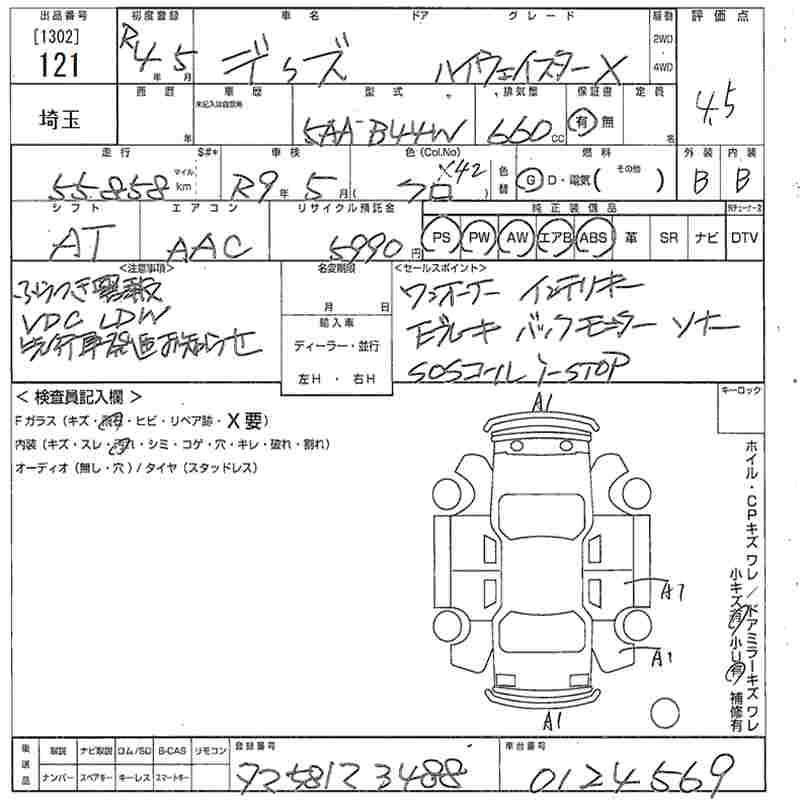 出品番号 初度登録 車名 ドア グレード 駆動 評価点
[1302] R 2WD
121 4年 5月 デイズ ハイウェイスターX 4WD 4.5
埼玉 西暦 年 車歴 型式 排気量 保証書 定員
未記入は自家用
5AA-B44W 660cc 有 無 名
走行 $#* 車検 色(Col.No) 燃料 外装 内装
55858 マイル km R9年 5月 (クロ X42) 色替 G D・電気(その他 ) B B
シフト エアコン リサイクル預託金 純正装備品
AT AAC 5990円 PS PW AW エアB ABS 革 SR ナビ DTV
<注意事項> 名変期限 <セールスポイント>
VDC LDW 月 日 ワンオーナー インテリキー
先行車発進お知らせ 輸入車 Eブレーキ バックモニター ソナー
ディーラー・並行 SOSコール i-STOP
左H ・ 右H
< 検査員記入欄 > キーロック
Fガラス(キズ・ ・ヒビ・リペア跡・X要)
内装(キズ・スレ・汚れ・シミ・コゲ・穴・キレ・破れ・割れ)
オーディオ(無し・穴)/タイヤ(スタッドレス)
A1
A1
A1
ホイル・CPキズ ワレ/ドアミラーキズ ワレ
小キズ有 小U有 補修有
後送品 取説 ナビ取説 ロム/SD B-CAS リモコン 登録番号 車台番号
ナンバー スペアキー キーレス スマートキー 3488 0124569